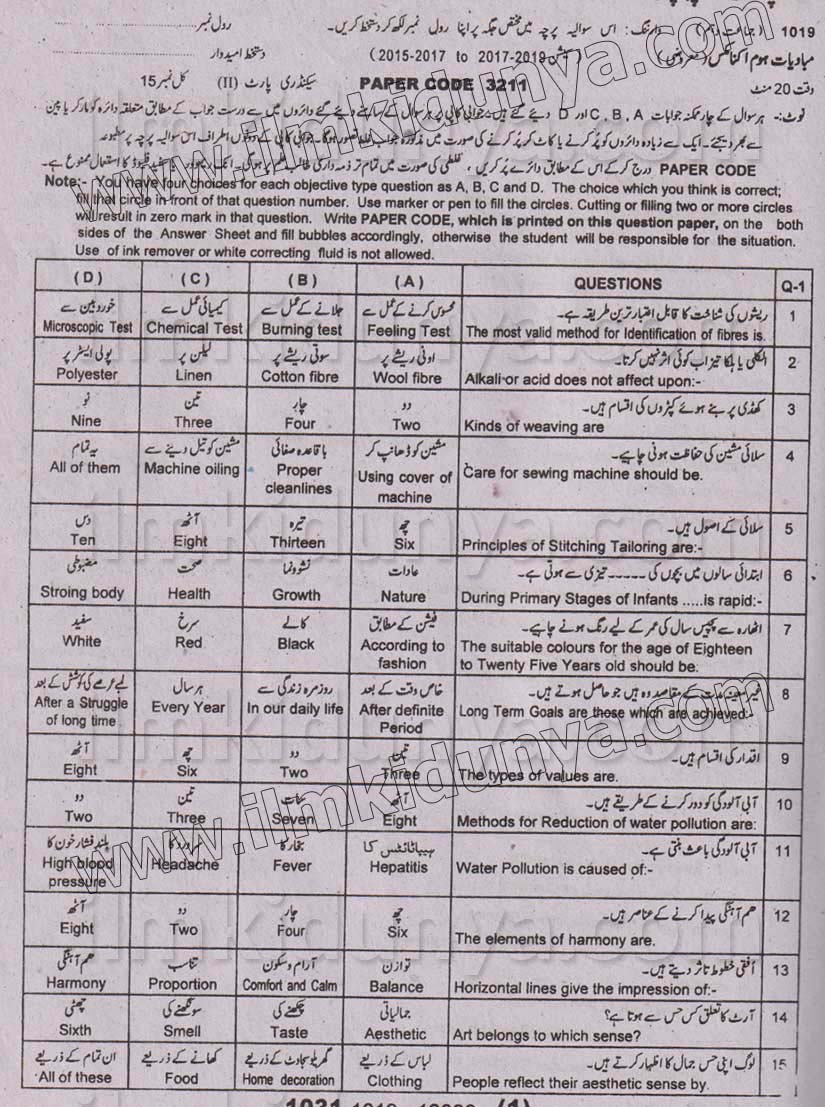 1019 (جماعت دہم) وارننگ: اس سوالیہ پرچہ میں مختص جگہ پر اپنا رول نمبر لکھ کر دستخط کریں۔ رول نمبر
مبادیات ہوم اکنامکس (معروضی) (سیشن 2017-2019 to 2015-2017) دستخط امیدوار
وقت 20 منٹ PAPER CODE 3211 سیکنڈری پارٹ (II) کل نمبر 15
نوٹ:- ہر سوال کے چار ممکنہ جوابات C, B, A اور D دیئے گئے ہیں۔ جوابی کاپی پر ہر سوال کے سامنے دیئے گئے دائروں میں سے درست جواب کے مطابق متعلقہ دائرہ کو مارکر یا پین
سے بھر دیجئے۔ ایک سے زیادہ دائروں کو پُر کرنے یا کاٹ کر پُر کرنے کی صورت میں مذکورہ جواب غلط تصور ہوگا۔ جوابی کاپی کے دونوں اطراف اس سوالیہ پرچہ پر مطبوعہ
PAPER CODE درج کر کے اس کے مطابق دائرے پُر کریں، غلطی کی صورت میں تمام تر ذمہ داری طالب علم پر ہوگی۔ انک ریموور یا سفید فلیوڈ کا استعمال ممنوع ہے۔
Note:- You have four choices for each objective type question as A, B, C and D. The choice which you think is correct;
fill that circle in front of that question number. Use marker or pen to fill the circles. Cutting or filling two or more circles
will result in zero mark in that question. Write PAPER CODE, which is printed on this question paper, on the both
sides of the Answer Sheet and fill bubbles accordingly, otherwise the student will be responsible for the situation.
Use of ink remover or white correcting fluid is not allowed.
(D) (C) (B) (A) QUESTIONS Q-1
خوردبین سے کیمیائی عمل سے جلانے کے عمل سے محسوس کرنے کے عمل سے ریشوں کی شناخت کا قابل اعتبار ترین طریقہ ہے۔ 1
Microscopic Test Chemical Test Burning test Feeling Test The most valid method for Identification of fibres is.
پولی ایسٹر پر لینن پر سوتی ریشے پر اونی ریشے پر الکلی یا ہلکا تیزاب کوئی اثر نہیں کرتا۔ 2
Polyester Linen Cotton fibre Wool fibre Alkali or acid does not affect upon:-
نو تین چار دو کھڈی پر بنے ہوئے کپڑوں کی اقسام ہیں۔ 3
Nine Three Four Two Kinds of weaving are
یہ تمام مشین کو تیل دینے سے باقاعدہ صفائی مشین کو ڈھانپ کر سلائی مشین کی حفاظت ہونی چاہیے۔ 4
All of them Machine oiling Proper Using cover of Care for sewing machine should be.
cleanlines machine
دس آٹھ تیرہ چھ سلائی کے اصول ہیں۔ 5
Ten Eight Thirteen Six Principles of Stitching Tailoring are:-
مضبوطی صحت نشوونما عادات ابتدائی سالوں میں بچوں کی ----- تیزی سے ہوتی ہے۔ 6
Stroing body Health Growth Nature During Primary Stages of Infants .....is rapid:-
سفید سرخ کالے فیشن کے مطابق اٹھارہ سے پچیس سال کی عمر کے لیے رنگ ہونے چاہیے۔ 7
White Red Black According to The suitable colours for the age of Eighteen
fashion to Twenty Five Years old should be.
لمبے عرصے کی کوشش کے بعد ہر سال روزمرہ زندگی سے خاص وقت کے بعد مدت کے مقاصد وہ ہیں جو حاصل ہوتے ہیں۔ 8
After a Struggle Every Year In our daily life After definite Long Term Goals are those which are achieved:-
of long time Period
آٹھ چھ دو تین اقدار کی اقسام ہیں۔ 9
Eight Six Two Three The types of values are.
دو تین سات آٹھ آبی آلودگی کو دور کرنے کے طریقے ہیں۔ 10
Two Three Seven Eight Methods for Reduction of water pollution are:
بلند فشار خون کا سر درد کا بخار کا ہیپاٹائٹس کا آبی آلودگی باعث بنتی ہے۔ 11
High blood Headache Fever Hepatitis Water Pollution is caused of:-
pressure
آٹھ دو چار چھ ھم آہنگی پیدا کرنے کے عناصر ہیں۔ 12
Eight Two Four Six The elements of harmony are.
ھم آہنگی تناسب آرام و سکون توازن اُفقی خطوط تاثر دیتے ہیں۔ 13
Harmony Proportion Comfort and Calm Balance Horizontal lines give the impression of:-
چھٹی سونگھنے کی چکھنے کی جمالیاتی آرٹ کا تعلق کس حس سے ہوتا ہے؟ 14
Sixth Smell Taste Aesthetic Art belongs to which sense?
ان تمام کے ذریعے کھانے کے ذریعے گھریلو سجاوٹ کے ذریعے لباس کے ذریعے لوگ اپنی حس جمال کا اظہار کرتے ہیں۔ 15
All of these Food Home decoration Clothing People reflect their aesthetic sense by.
www.ilmkidunya.com
www.ilmkidunya.com
ilmkidunya.com